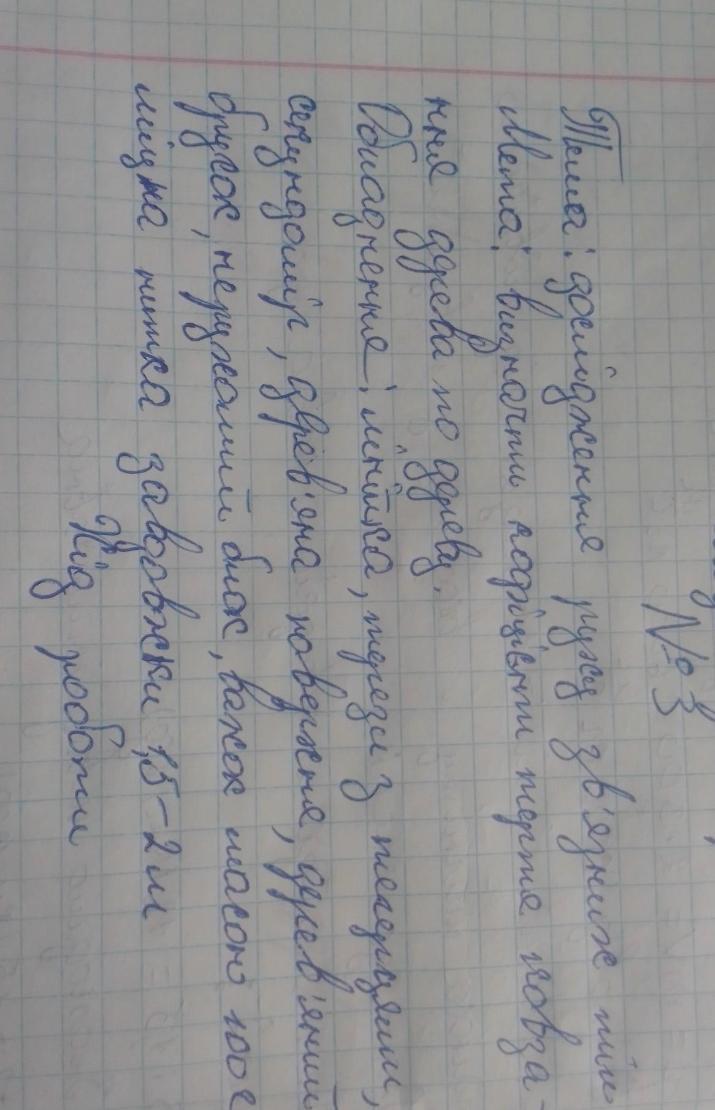 № 3
Тема: дослідження руху зв'язних тіл
Мета: визначити коефіцієнт тертя ковза-
ння дерева по дереву.
Обладнання: лінійка, терези з тягарцями,
секундомір, дерев'яна поверхня, дерев'яний
брусок, нерухомий блок, важок масою 100 г
міцна нитка завдовжки 1,5-2 м
Хід роботи